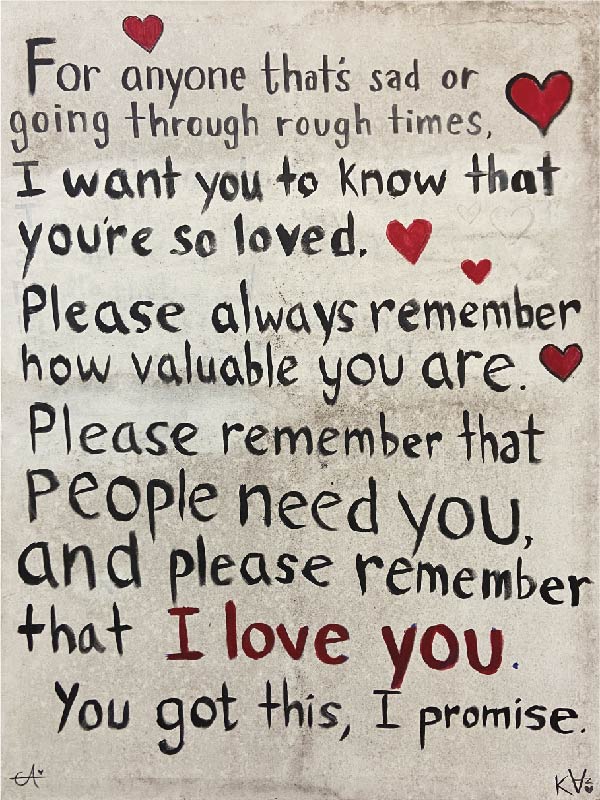 For anyone that's sad or
going through rough times,
I want you to know that
you're so loved.
Please always remember
how valuable you are.
Please remember that
People need you,
and please remember
that I love you.
You got this, I promise.